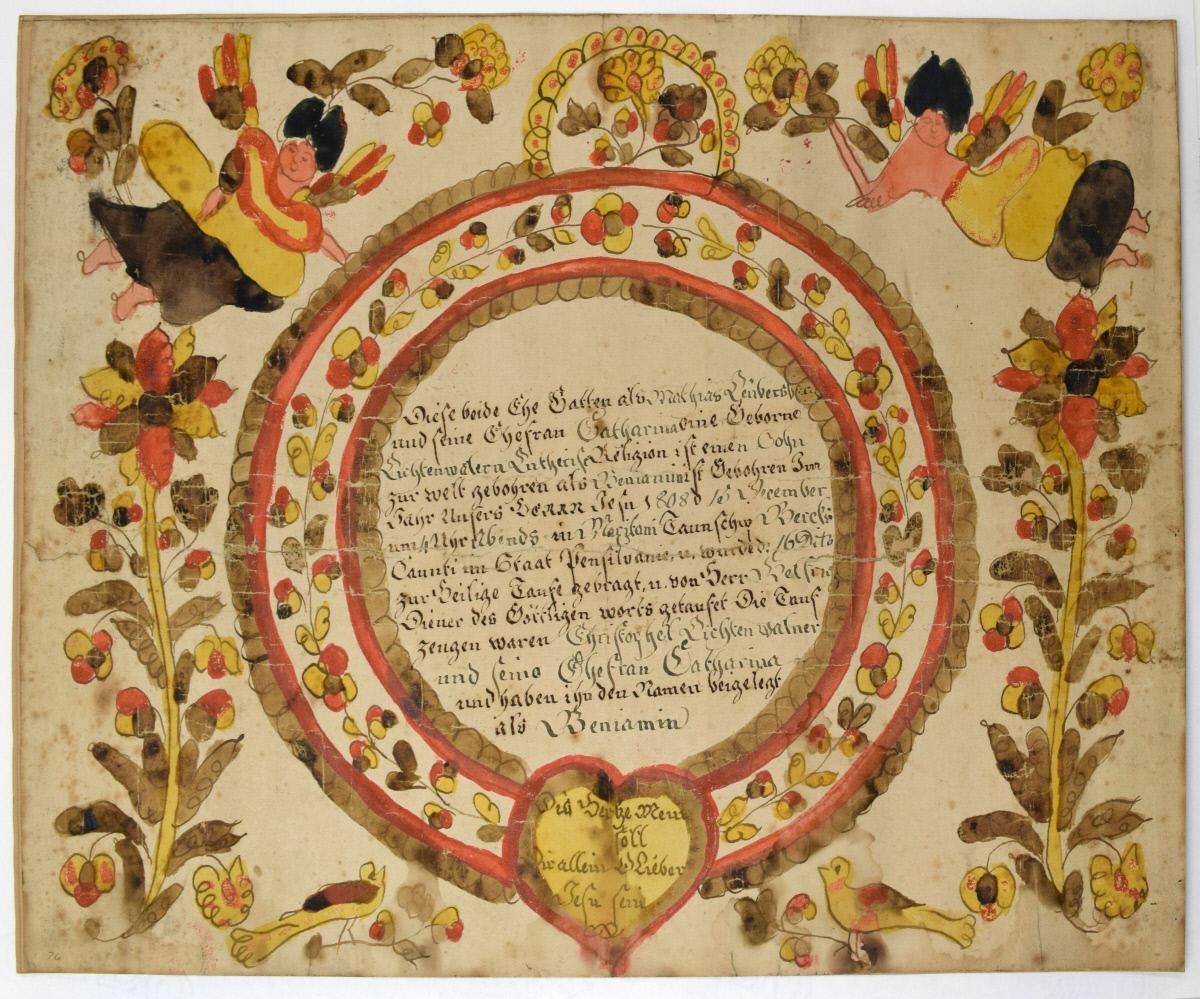 Diese beide Ehe Gatten als Mathias
und seine Ehefrau Catharina eine Geborne
Lichtenwalern Lutherisch Religion ist einen Sohn
zur welt gebohren als Beniamin ist Gebohren Im
Jahr Unsers Herrn Jesu 1808 d 15 December
um 4 Uhr Abends in Taunschip Bercks
Caunti im Staat Pensilvanie, u. wurde d: 16 Dito
zur Heilige Taufe gebragt, u. von Herr
Diener des Göttligen worts getaufet Die Tauf
zeugen waren Christophel Lichtenwalner
und seine Ehefrau Catharina
und haben ihn den Namen beigelegt
als Beniamin
Dis Hertze Mein
soll
Dir allein O Lieber
Jesu sein
76